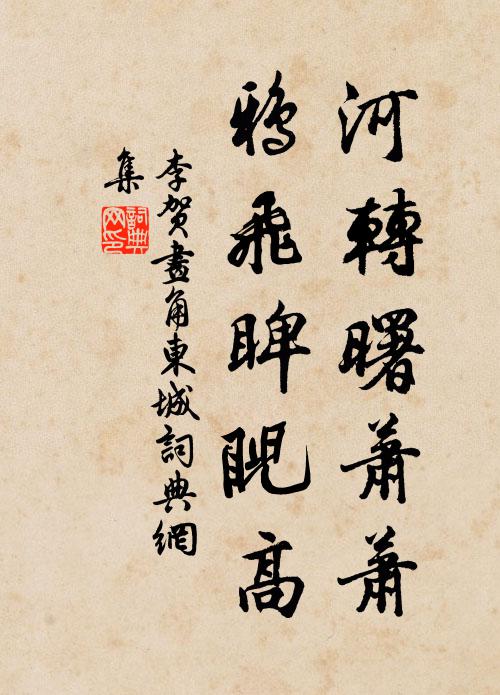 河轉曙蕭蕭
鴉飛睥睨高
李賀畫角東城詞典網
集
詞典
网印